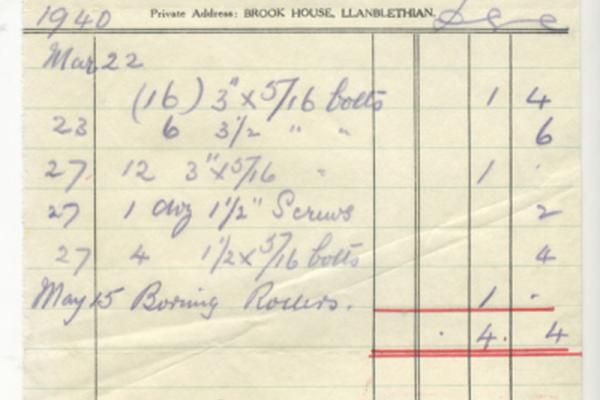 1940 Private Address: BROOK HOUSE, LLANBLETHIAN.
Mar 22
(16) 3" x 5/16 bolts 1 4
23 6 3 1/2 " " 6
27 12 3" x 5/16 " 1 .
27 1 doz 1 1/2" Screws 2
27 4 1 1/2 x 5/16 bolts 4
May 15 Boring Rollers. 1 .
. 4. 4